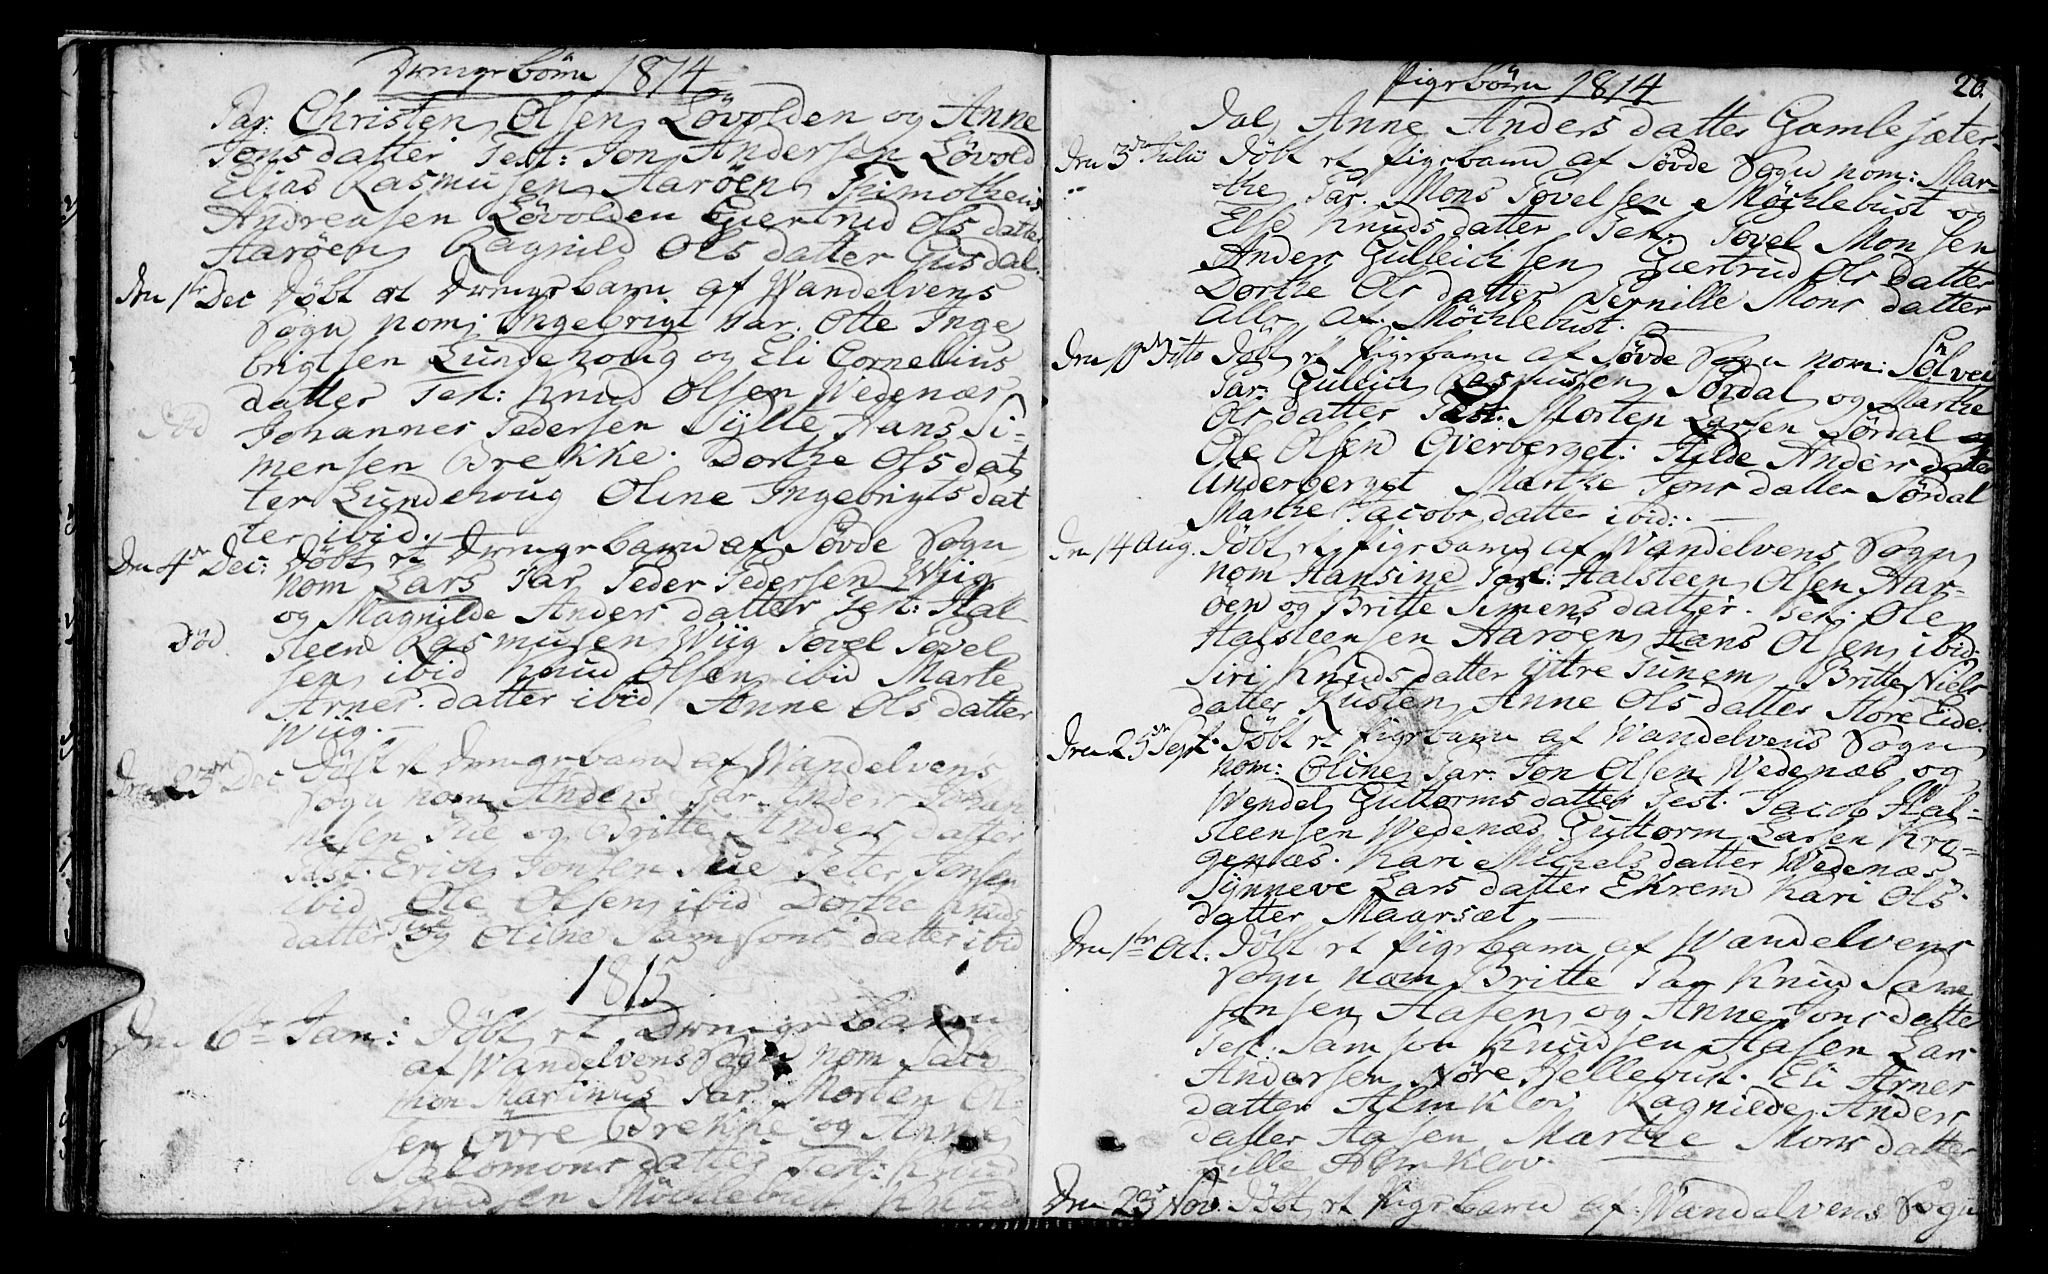 Drengebörn 1814
Par: Christen Olsen Lövolden og Anne
Jons datter Test: Jon Andersen Lövold
Elias Rasmusen Aaröen Thimotheus
Andreasen Lövolden Giertrud Ols datter
Aaröen Ragnild Ols datter Gusdal.
Den 1te Dec Döbt et Drengebarn af Wandelvens
Sogn nom: Ingebrigt Par. Otte Inge
brigtsen Lundehoug og Eli Cornelius
datter Test: Knud Olsen Wedenæs
Död Johannes Pedersen Sylte Hans Si=
mensen Brekke. Dorthe Ols dat
ter Lundehoug Oline Ingebrigts dat
ter ibid.
Den 4de Dec: Döbt et Drengebarn af Sövde Sogn
nom Lars Par Peder Pedersen Wiig
og Magnilde Anders datter Test: Hal
Död. steen Rasmusen Wiig Povel Povel
sen ibid Knud Olsen ibid Marte
Arnes datter ibid Anne Ols datter
Wiig.
Den 23de Dec Döbt et Drengebarn af Wandelvens
Sogn nom Anders Par Anders Johan
nesen Tue og Britte Anders datter
Test. Erich Jonsen Tue Peter Jonsen
ibid Ole Olsen ibid Dorthe Knuds
datter Tue og Oline Samsons datter ibid
1815
Den 6te Jan: Döbt et Drengebarn
af Wandelvens Sogn nom Salo
mon Martinus Par. Morten Ol=
sen Övre Brekke og Anne
Salomons datter Test: Knud
Knudsen Möchlebust Knud
Pigebörn 1814
20.
Dal Anne Anders datter Gamlesæter
Den 3de Julii Döbt et Pigebarn af Sövde Sogn nom: Mar=
the Par. Mons Povelsen Möchlebust og
Else Knuds datter Test. Povel Monsen
Anders Gulleichsen Giertrud Ols datter
Dorthe Ols datter Pernille Mons datter
alle af Möchlebust.
Den 10de Dito Döbt et Pigebarn af Sövde Sogn nom: Sölvei
Par: Gulleich Rasmussen Sördal og Marthe
Ols datter Test. Morten Larsen Sördal og
Ole Olsen Overberget: Hilde Anders datter
Underberget Marthe Jons datter Sördal
Marthe Jacobs datter ibid:
Den 14 Aug. Döbt et Pigebarn af Wandelvens Sogn
nom Hansine Par: Halsteen Olsen Aar=
öen og Britte Simens datter. Test: Ole
Halsteensen Aaröen Hans Olsen ibid
Siri Knuds datter Yttre Tunem Britte Niels
datter Rusten Anne Ols datter Store Eide.
Den 25de Sept. Döbt et Pigebarn af Wandelvens Sogn
nom: Oline Par: Jon Olsen Wedenæs og
Wendel Guttorms datter Test. Jacob Hal=
steensen Wedenæs Guttorm Larsen Kro=
genæs. Kari Michels datter Wedenæs
Synneve Lars datter Ekrem Kari Ols
datter Maarsæt
Den 1te Oct. Döbt et Pigebarn af Wandelvens
Sogn nom Britte Par Knud Sam
sonsen Aasen og Anne Jons datter
Test. Samson Knudsen Aasen Lars
Andersen Nöre Hellebust. Eli Arnes
datter Almklov Ragnilde Anders
datter Aasen Marthe Mons datter
Lille Almklov.
Den 23de Nov. Döbt et Pigebarn af Wandelvens Sogn